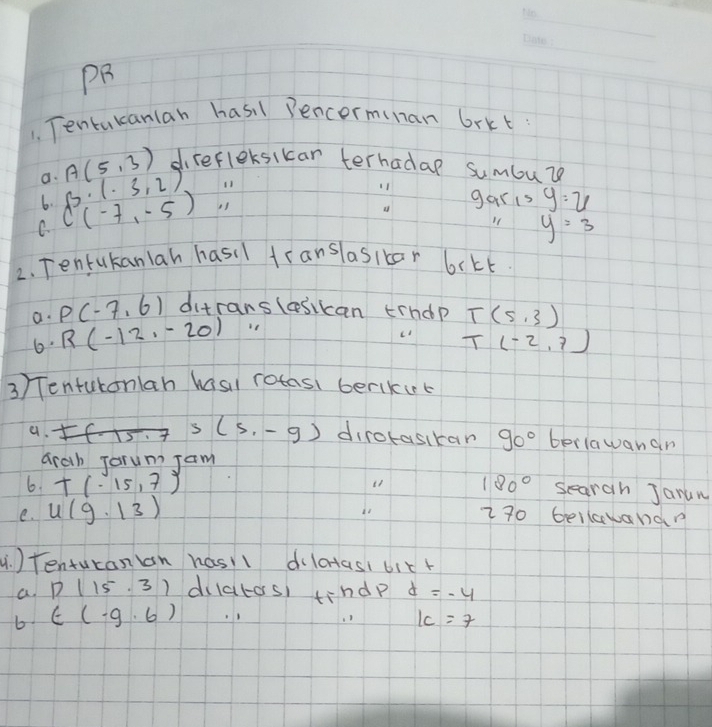 No
Date
PR
1. Tentukanlah hasil Pencerminan brkt :
a. A(5,3) direfleksikan terhadap sumbu x
b. B. (-3,2) " " garis y=x
c. C(-7,-5) " " " y=3
2. Tentukanlah hasil translasikan brkt.
a. P(-7,6) ditranslasikan trhdp T(5,3)
b. R(-12,-20) " " T(-2,7)
3) Tentukanlah hasil rotasi berikut
a. S(5,-9) dirotasikan 90° berlawanan
arah jarum jam
b. T(-15,7) " 180° searah Jarum
c. U(9.13) " 270 berlawanan
4.) Tentukanlah hasil dilatasi brkt
a. D(15.3) dilatasi trhdp = -4
b. E(-9.6) " " k=7